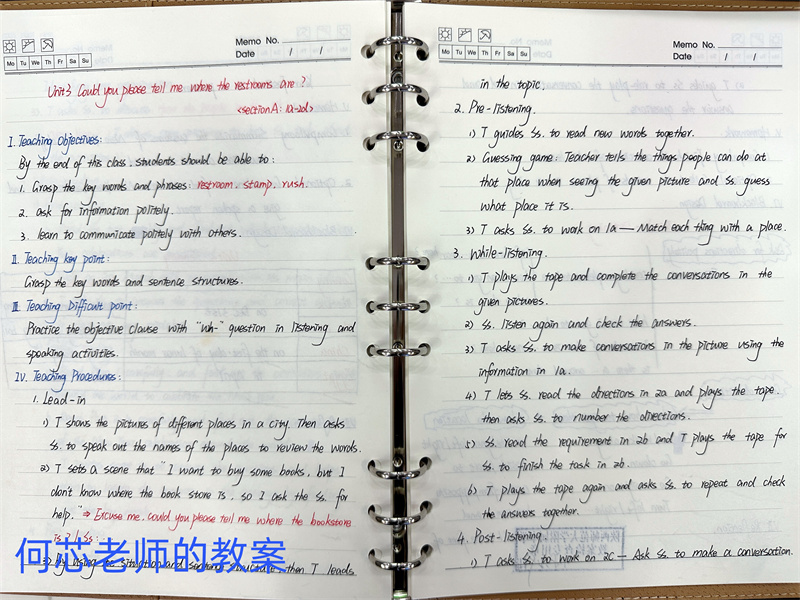 Memo No.
Mo Tu We Th Fr Sa Su
Date / /
Unit3 Could you please tell me where the restrooms are?
<section A: 1a-2d>
I. Teaching Objectives:
By the end of this class, students should be able to:
1. Grasp the key words and phrases: restroom, stamp, rush.
2. ask for information politely.
3. learn to communicate politely with others.
II. Teaching key point:
Grasp the key words and sentence structures.
III. Teaching Difficult point:
Practice the objective clause with "wh-" question in listening and
speaking activities.
IV. Teaching Procedures:
1. Lead-in
1) T shows the pictures of different places in a city. Then asks
Ss. to speak out the names of the places to review the words.
2) T sets a scene that "I want to buy some books, but I
don't know where the book store is, so I ask the Ss. for
help." → Excuse me, could you please tell me where the bookstore
is?
何芯老师的教案
3) By using the situation and sentence structure, then T leads
Memo No.
Mo Tu We Th Fr Sa Su
Date / /
in the topic.
2. Pre-listening.
1) T guides Ss. to read new words together.
2) Guessing game: Teacher tells the things people can do at
that place when seeing the given picture and Ss. guess
what place it is.
3) T asks Ss. to work on 1a — Match each thing with a place.
3. While-listening.
1) T plays the tape and complete the conversations in the
given pictures.
2) Ss. listen again and check the answers.
3) T asks Ss. to make conversations in the picture using the
information in 1a.
4) T lets Ss. read the directions in 2a and plays the tape.
then asks Ss. to number the directions.
5) Ss. read the requirement in 2b and T plays the tape for
Ss. to finish the task in 2b.
6) T plays the tape again and asks Ss. to repeat and check
the answers together.
4. Post-listening
1) T asks Ss. to work on 2c — Ask Ss. to make a conversation.